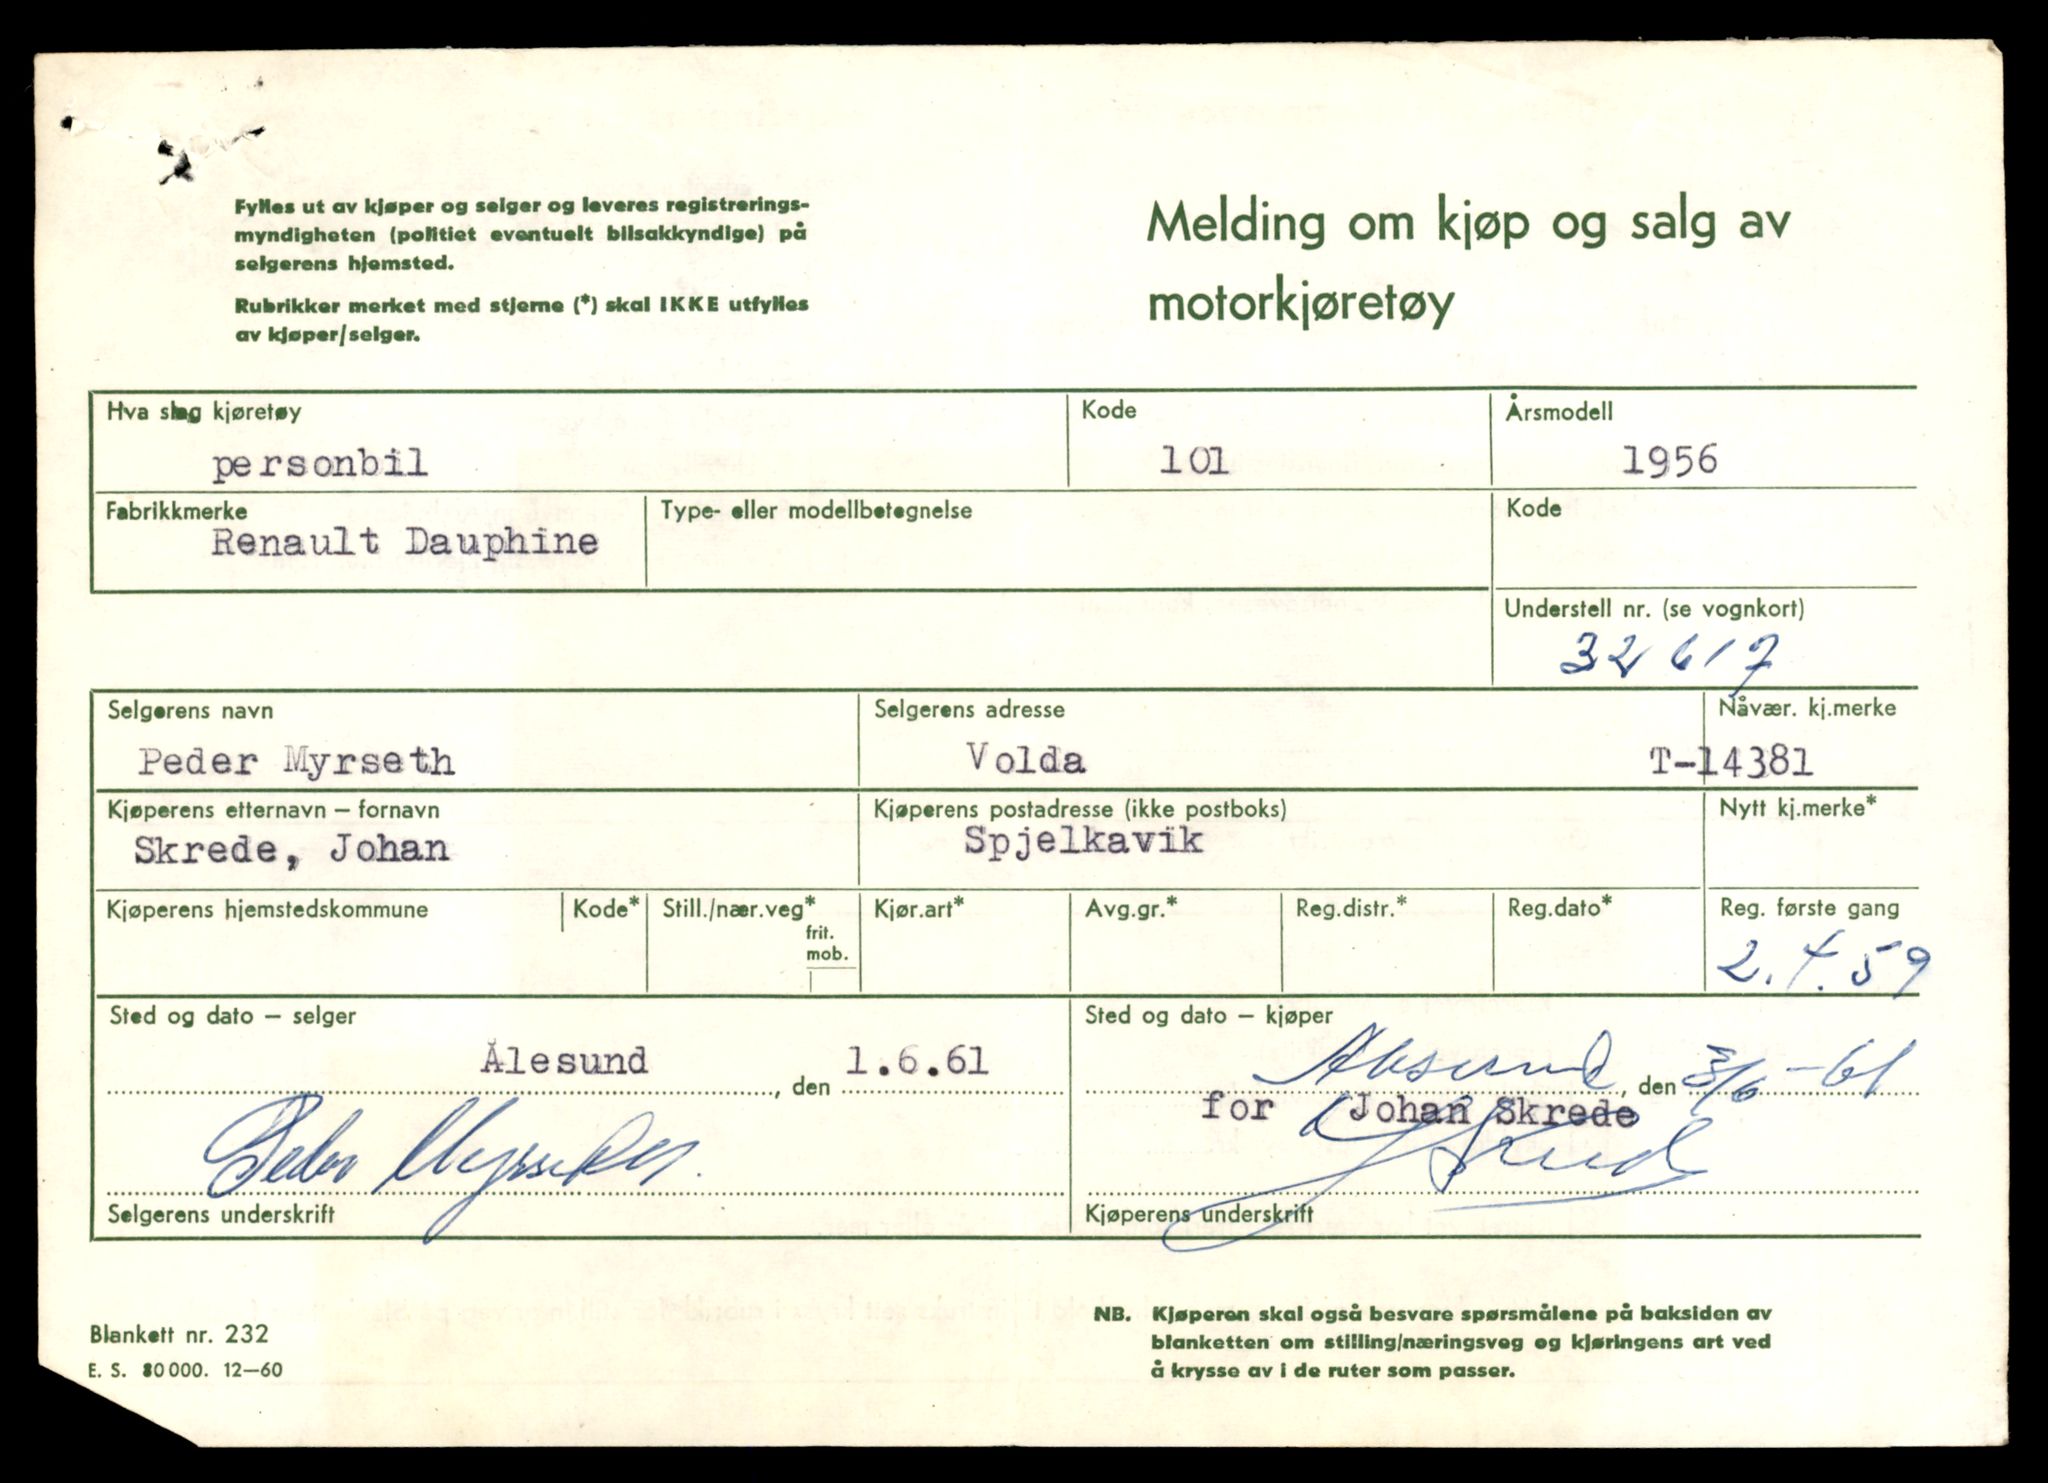 Fylles ut av kjøper og selger og leveres registrerings-
myndigheten (politiet eventuelt bilsakkyndige) på
selgerens hjemsted.
Rubrikker merket med stjerne (*) skal IKKE utfylles
av kjøper/selger.
Melding om kjøp og salg av
motorkjøretøy
Hva slag kjøretøy
personbil
Kode
101
Årsmodell
1956
Fabrikkmerke
Renault Dauphine
Type- eller modellbetegnelse
Kode
Understell nr. (se vognkort)
32617
Selgerens navn
Peder Myrseth
Selgerens adresse
Volda
Nåvær. kj.merke
T-14381
Kjøperens etternavn – fornavn
Skrede, Johan
Kjøperens postadresse (ikke postboks)
Spjelkavik
Nytt kj.merke*
Kjøperens hjemstedskommune
Kode*
Still./nær.veg*
frit.
mob.
Kjør.art*
Avg.gr.*
Reg.distr.*
Reg.dato*
Reg. første gang
2.4.59
Sted og dato – selger
Ålesund , den 1.6.61
Peder Myrseth
Selgerens underskrift
Sted og dato – kjøper
Ålesund, den 3/6-61
for Johan Skrede
Skrede
Kjøperens underskrift
Blankett nr. 232
E. S. 80000. 12–60
NB. Kjøperen skal også besvare spørsmålene på baksiden av
blanketten om stilling/næringsveg og kjøringens art ved
å krysse av i de ruter som passer.